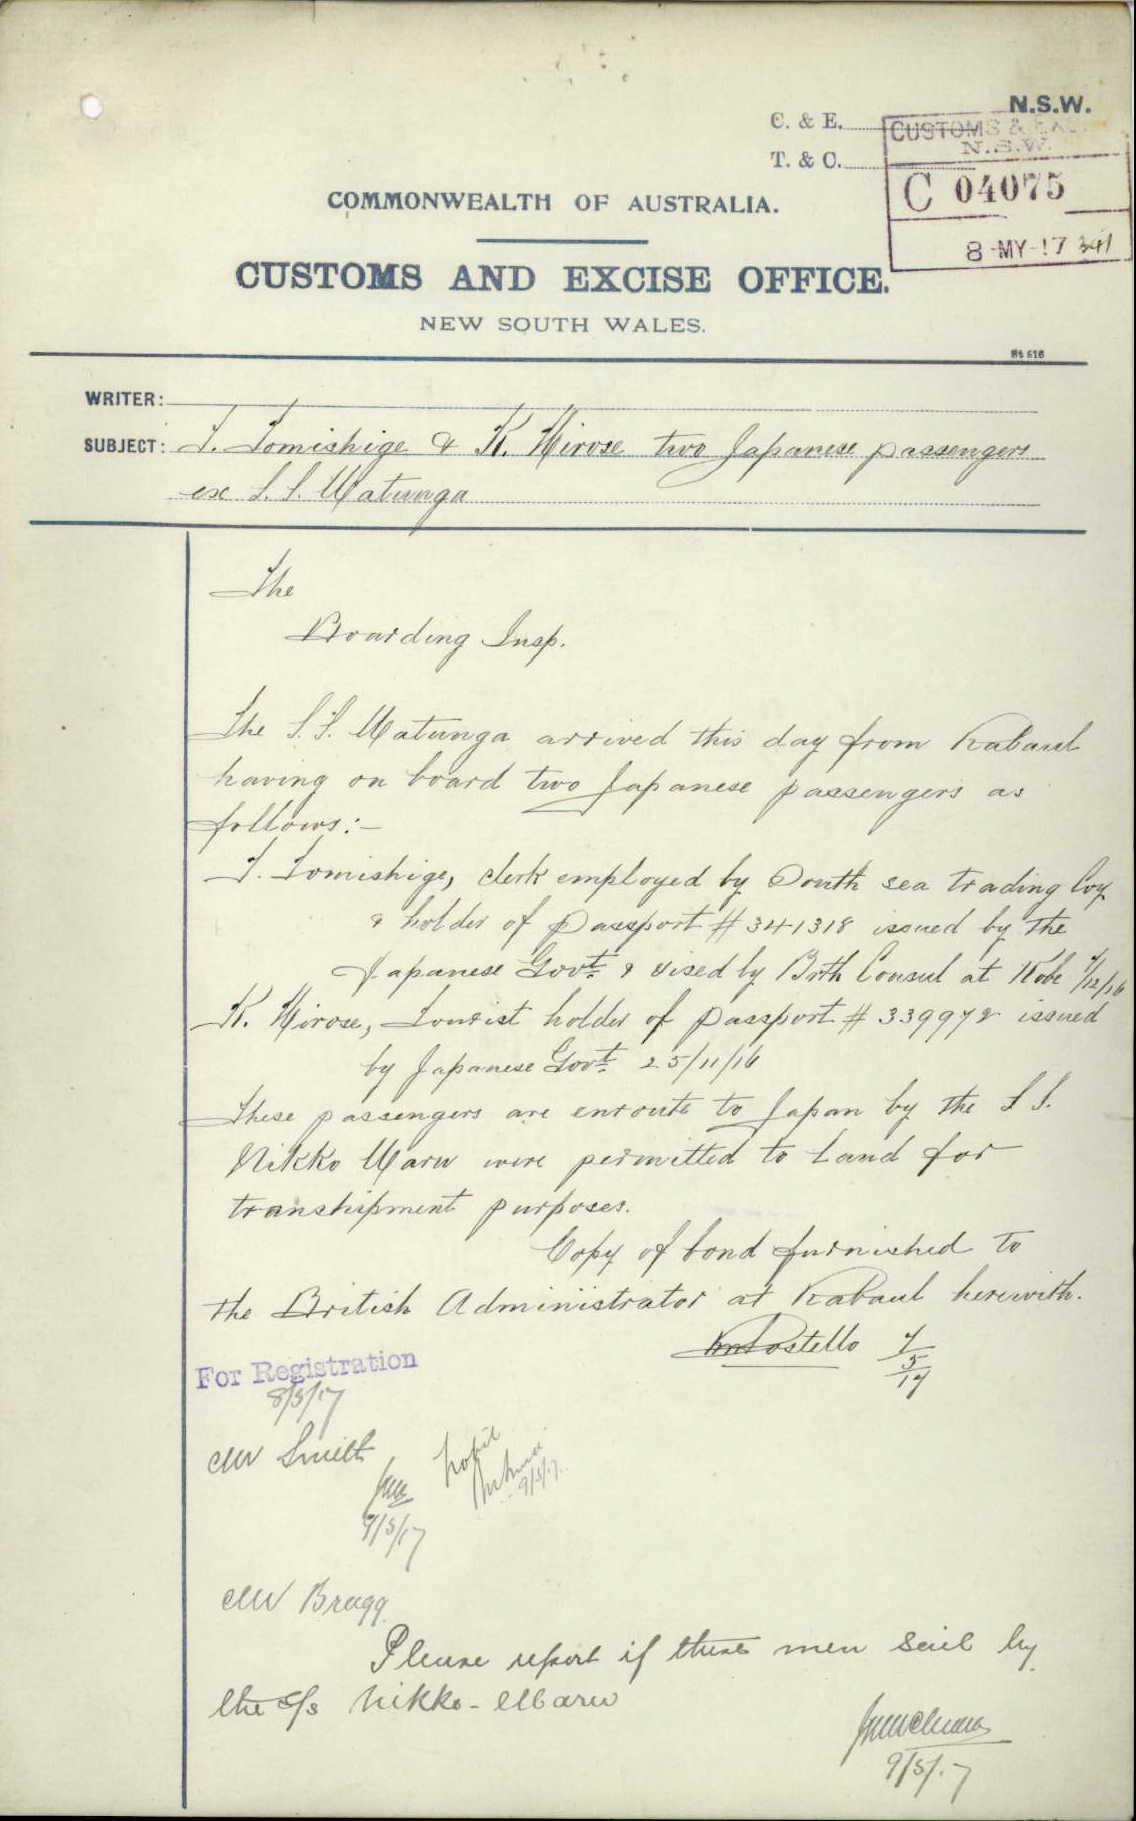 N.S.W.
C. & E.
T. & C.
CUSTOMS &
N.S.W.
C 04075
8 -MY-17
COMMONWEALTH OF AUSTRALIA.
CUSTOMS AND EXCISE OFFICE.
NEW SOUTH WALES.
WRITER:
SUBJECT: T. Tomishige & K. Hirose two Japanese passengers
ex S.S. Matunga
The
Boarding Insp.
The S.S. Matunga arrived this day from Rabaul
having on board two Japanese passengers as
follows:-
T. Tomishige, clerk employed by South sea trading Coy
& holder of Passport # 341318 issued by the
Japanese Govt. & vised by Brth Consul at Kobe 7/12/16
K. Hirose, Tourist holder of passport # 339972 issued
by Japanese Govt. 25/11/16
These passengers are enroute to Japan by the S S.
Nikko Maru were permitted to land for
transhipment purposes.
Copy of bond furnished to
the British Administrator at Rabaul herewith.
Costello 7/5/17
For Registration
8/5/17
Mr Smith
9/5/17
9/5/17.
Mr Bragg
Please report if these men sail by
the s/s Nikko-Maru
9/5/17